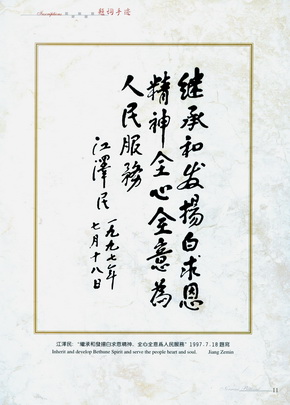 Inscriptions
题词手迹
继承和发揚白求恩
精神全心全意為
人民服務
江澤民
一九九七年
七月十八日
江泽民:“繼承和發揚白求恩精神,全心全意爲人民服務”1997.7.18題寫
Inherit and develop Bethune Spirit and serve the people heart and soul. Jiang Zemin
11